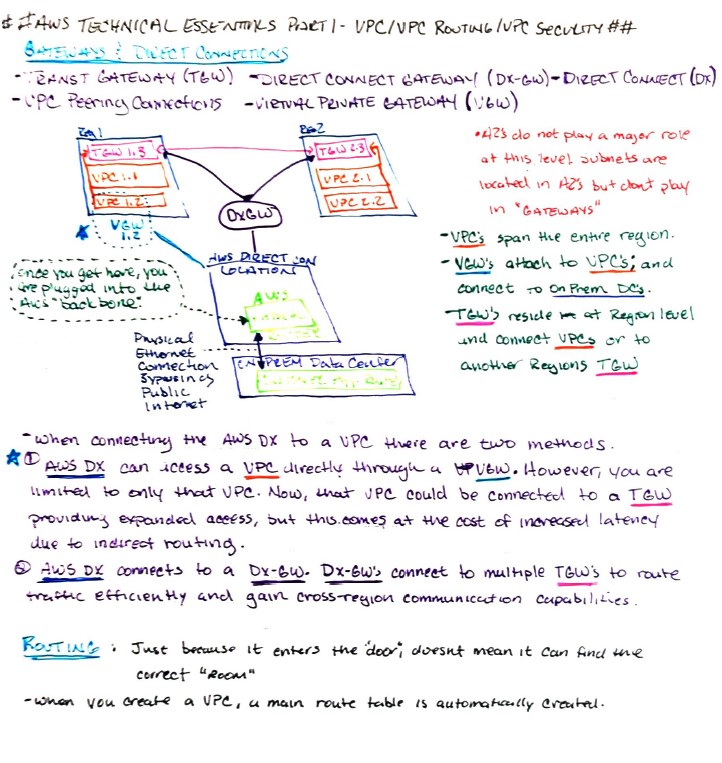 ##AWS TECHNICAL ESSENTIALS PART 1 - VPC/VPC ROUTING/VPC SECURITY ##
GATEWAYS & DIRECT CONNECTIONS
-TRANSIT GATEWAY (TGW) -DIRECT CONNECT GATEWAY (DX-GW) -DIRECT CONNECT (DX)
-VPC Peering Connections -VIRTUAL PRIVATE GATEWAY (VGW)
Reg 1
TGW 1.3
VPC 1.1
VPC 1.2
VGW
1.2
REG 2
TGW 2.3
VPC 2.1
VPC 2.2
DXGW
AWS DIRECT CON
LOCATION
AWS
Once you get here, you
are plugged into the
AWS "backbone"
Physical
Ethernet
Connection
Bypassing
Public
Internet
ON PREM Data Center
•AZ's do not play a major role
at this level subnets are
located in AZ's but dont play
in "GATEWAYS"
-VPC's span the entire region.
-VGW's attach to VPC's; and
connect to On Prem DC's.
TGW's reside at Region level
and connect VPCs or to
another Regions TGW
-when connecting the AWS DX to a VPC there are two methods.
① AWS DX can access a VPC directly through a VGW. However, you are
limited to only that VPC. Now, that VPC could be connected to a TGW
providing expanded access, but this comes at the cost of increased latency
due to indirect routing.
② AWS DX connects to a DX-GW. DX-GW's connect to multiple TGW's to route
traffic efficiently and gain cross-region communication capabilities.
ROUTING: Just because it enters the "door", doesnt mean it can find the
correct "ROOM"
-when you create a VPC, a main route table is automatically created.